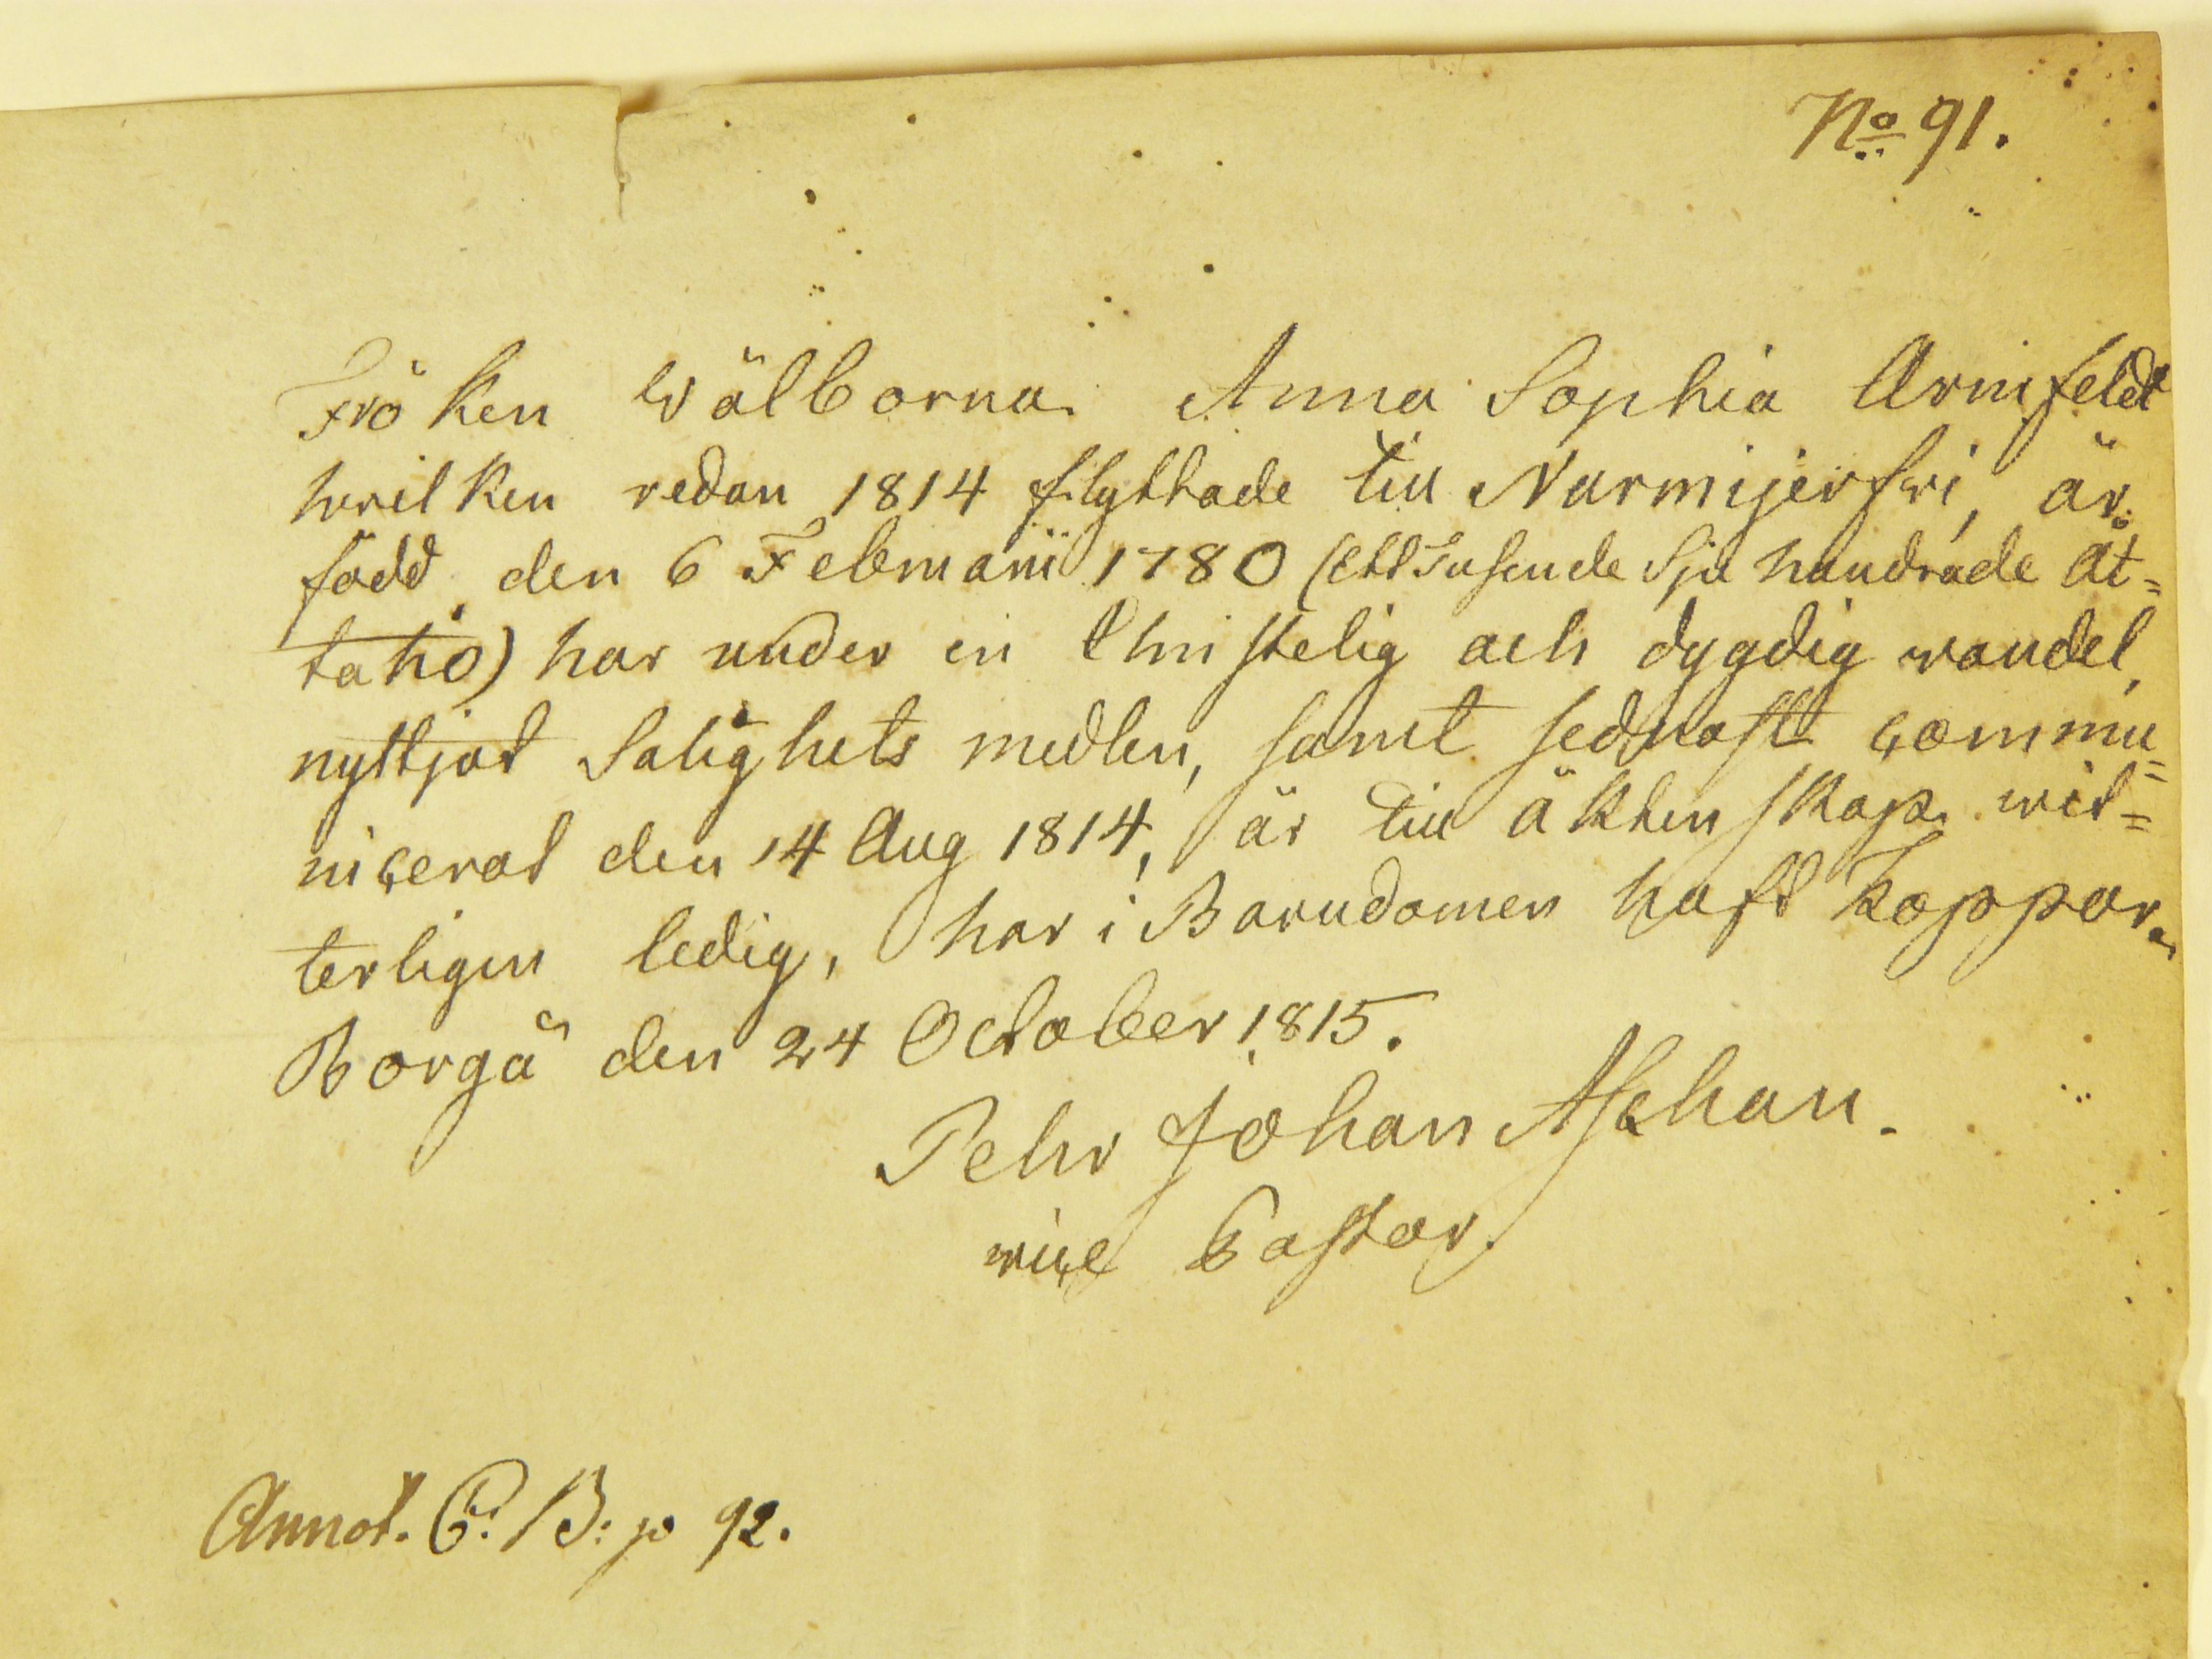 No 91.
Fröken Wälborna Anna Sophia Armfeldt
hwilken redan 1814 flyttade till Nurmijerfwi, är
född den 6 Februarii 1780 (Ett Tusende Sju hundrade åt=
tatio) har under en Christelig och dygdig wandel,
nyttjat Salighets medlen, samt sednast commu=
nicerat den 14 Aug 1814, är till äktenskap wit=
terligen ledig, har i Barndomen haft Koppor.
Borgå den 24 October 1815.
Pehr Johan Aschan.
vice Pastor.
Annot. C. B: p 92.